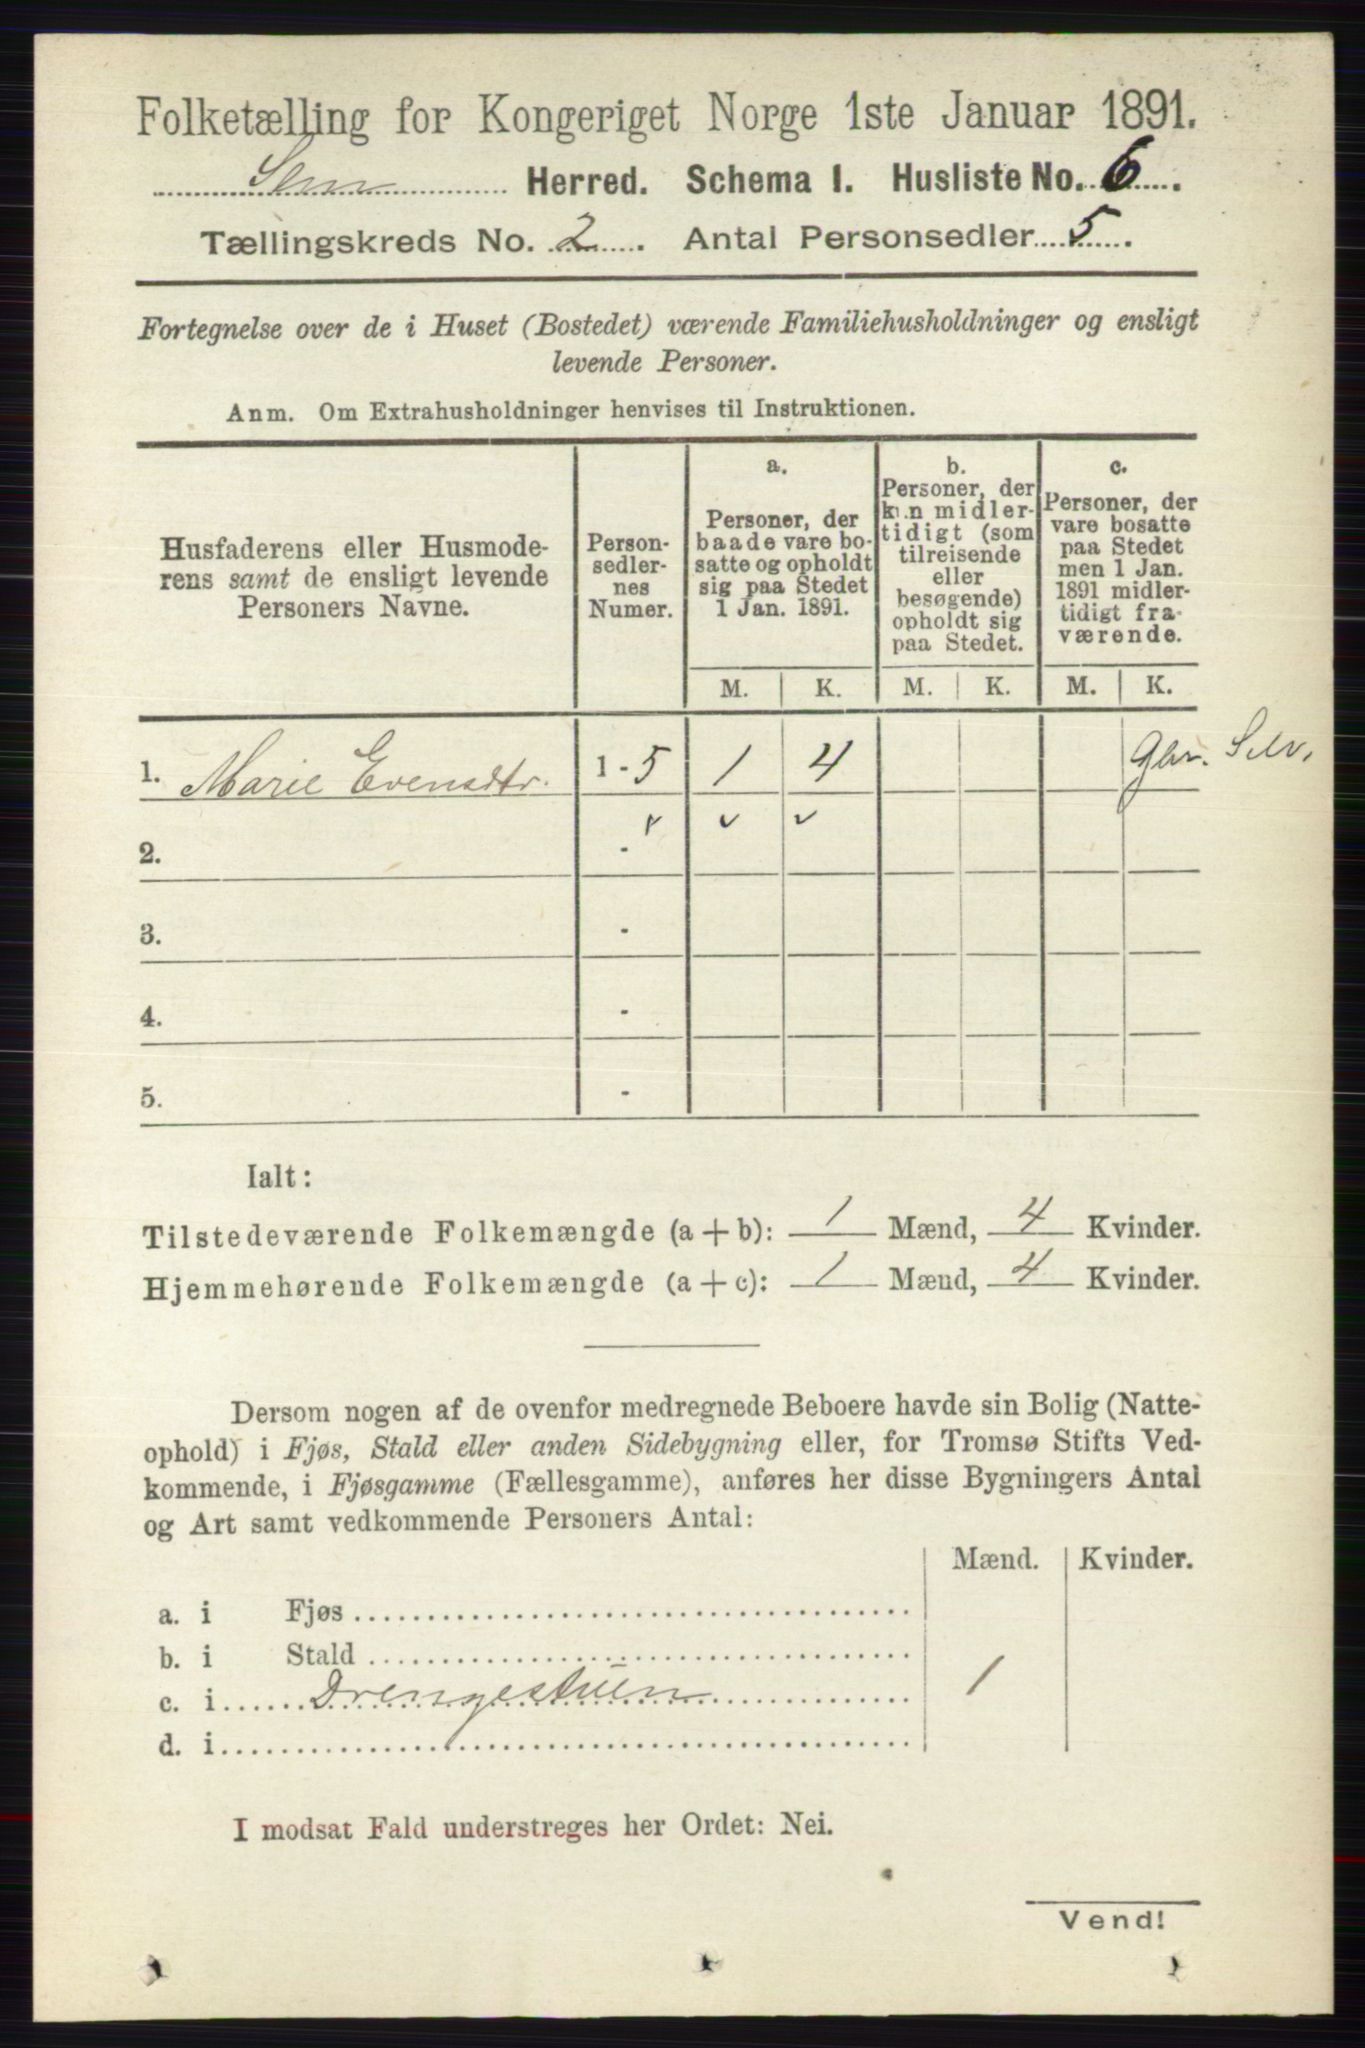 Folketælling for Kongeriget Norge 1ste Januar 1891.
Sem Herred. Schema I. Husliste No. 6.
Tællingskreds No. 2. Antal Personsedler 5.
Fortegnelse over de i Huset (Bostedet) værende Familiehusholdninger og ensligt
levende Personer.
Anm. Om Extrahusholdninger henvises til Instruktionen.
Husfaderens eller Husmode-
rens samt de ensligt levende
Personers Navne.
Person-
sedler-
nes
Numer.
a.
Personer, der
baade vare bo-
satte og opholdt
sig paa Stedet
1 Jan. 1891.
b.
Personer, der
kun midler-
tidigt (som
tilreisende
eller
besøgende)
opholdt sig
paa Stedet.
c.
Personer, der
vare bosatte
paa Stedet
men 1 Jan.
1891 midler-
tidigt fra-
værende.
M. K. M. K. M. K.
1. Marie Evensdtr. 1 - 5 1 4 Gbr. Selv.
2. -
3. -
4. -
5. -
Ialt:
Tilstedeværende Folkemængde (a + b): 1 Mænd, 4 Kvinder.
Hjemmehørende Folkemængde (a + c): 1 Mænd, 4 Kvinder.
Dersom nogen af de ovenfor medregnede Beboere havde sin Bolig (Natte-
ophold) i Fjøs, Stald eller anden Sidebygning eller, for Tromsø Stifts Ved-
kommende, i Fjøsgamme (Fællesgamme), anføres her disse Bygningers Antal
og Art samt vedkommende Personers Antal:
Mænd. Kvinder.
a. i Fjøs
b. i Stald
c. i Drengestuen 1
d. i
I modsat Fald understreges her Ordet: Nei.
Vend!